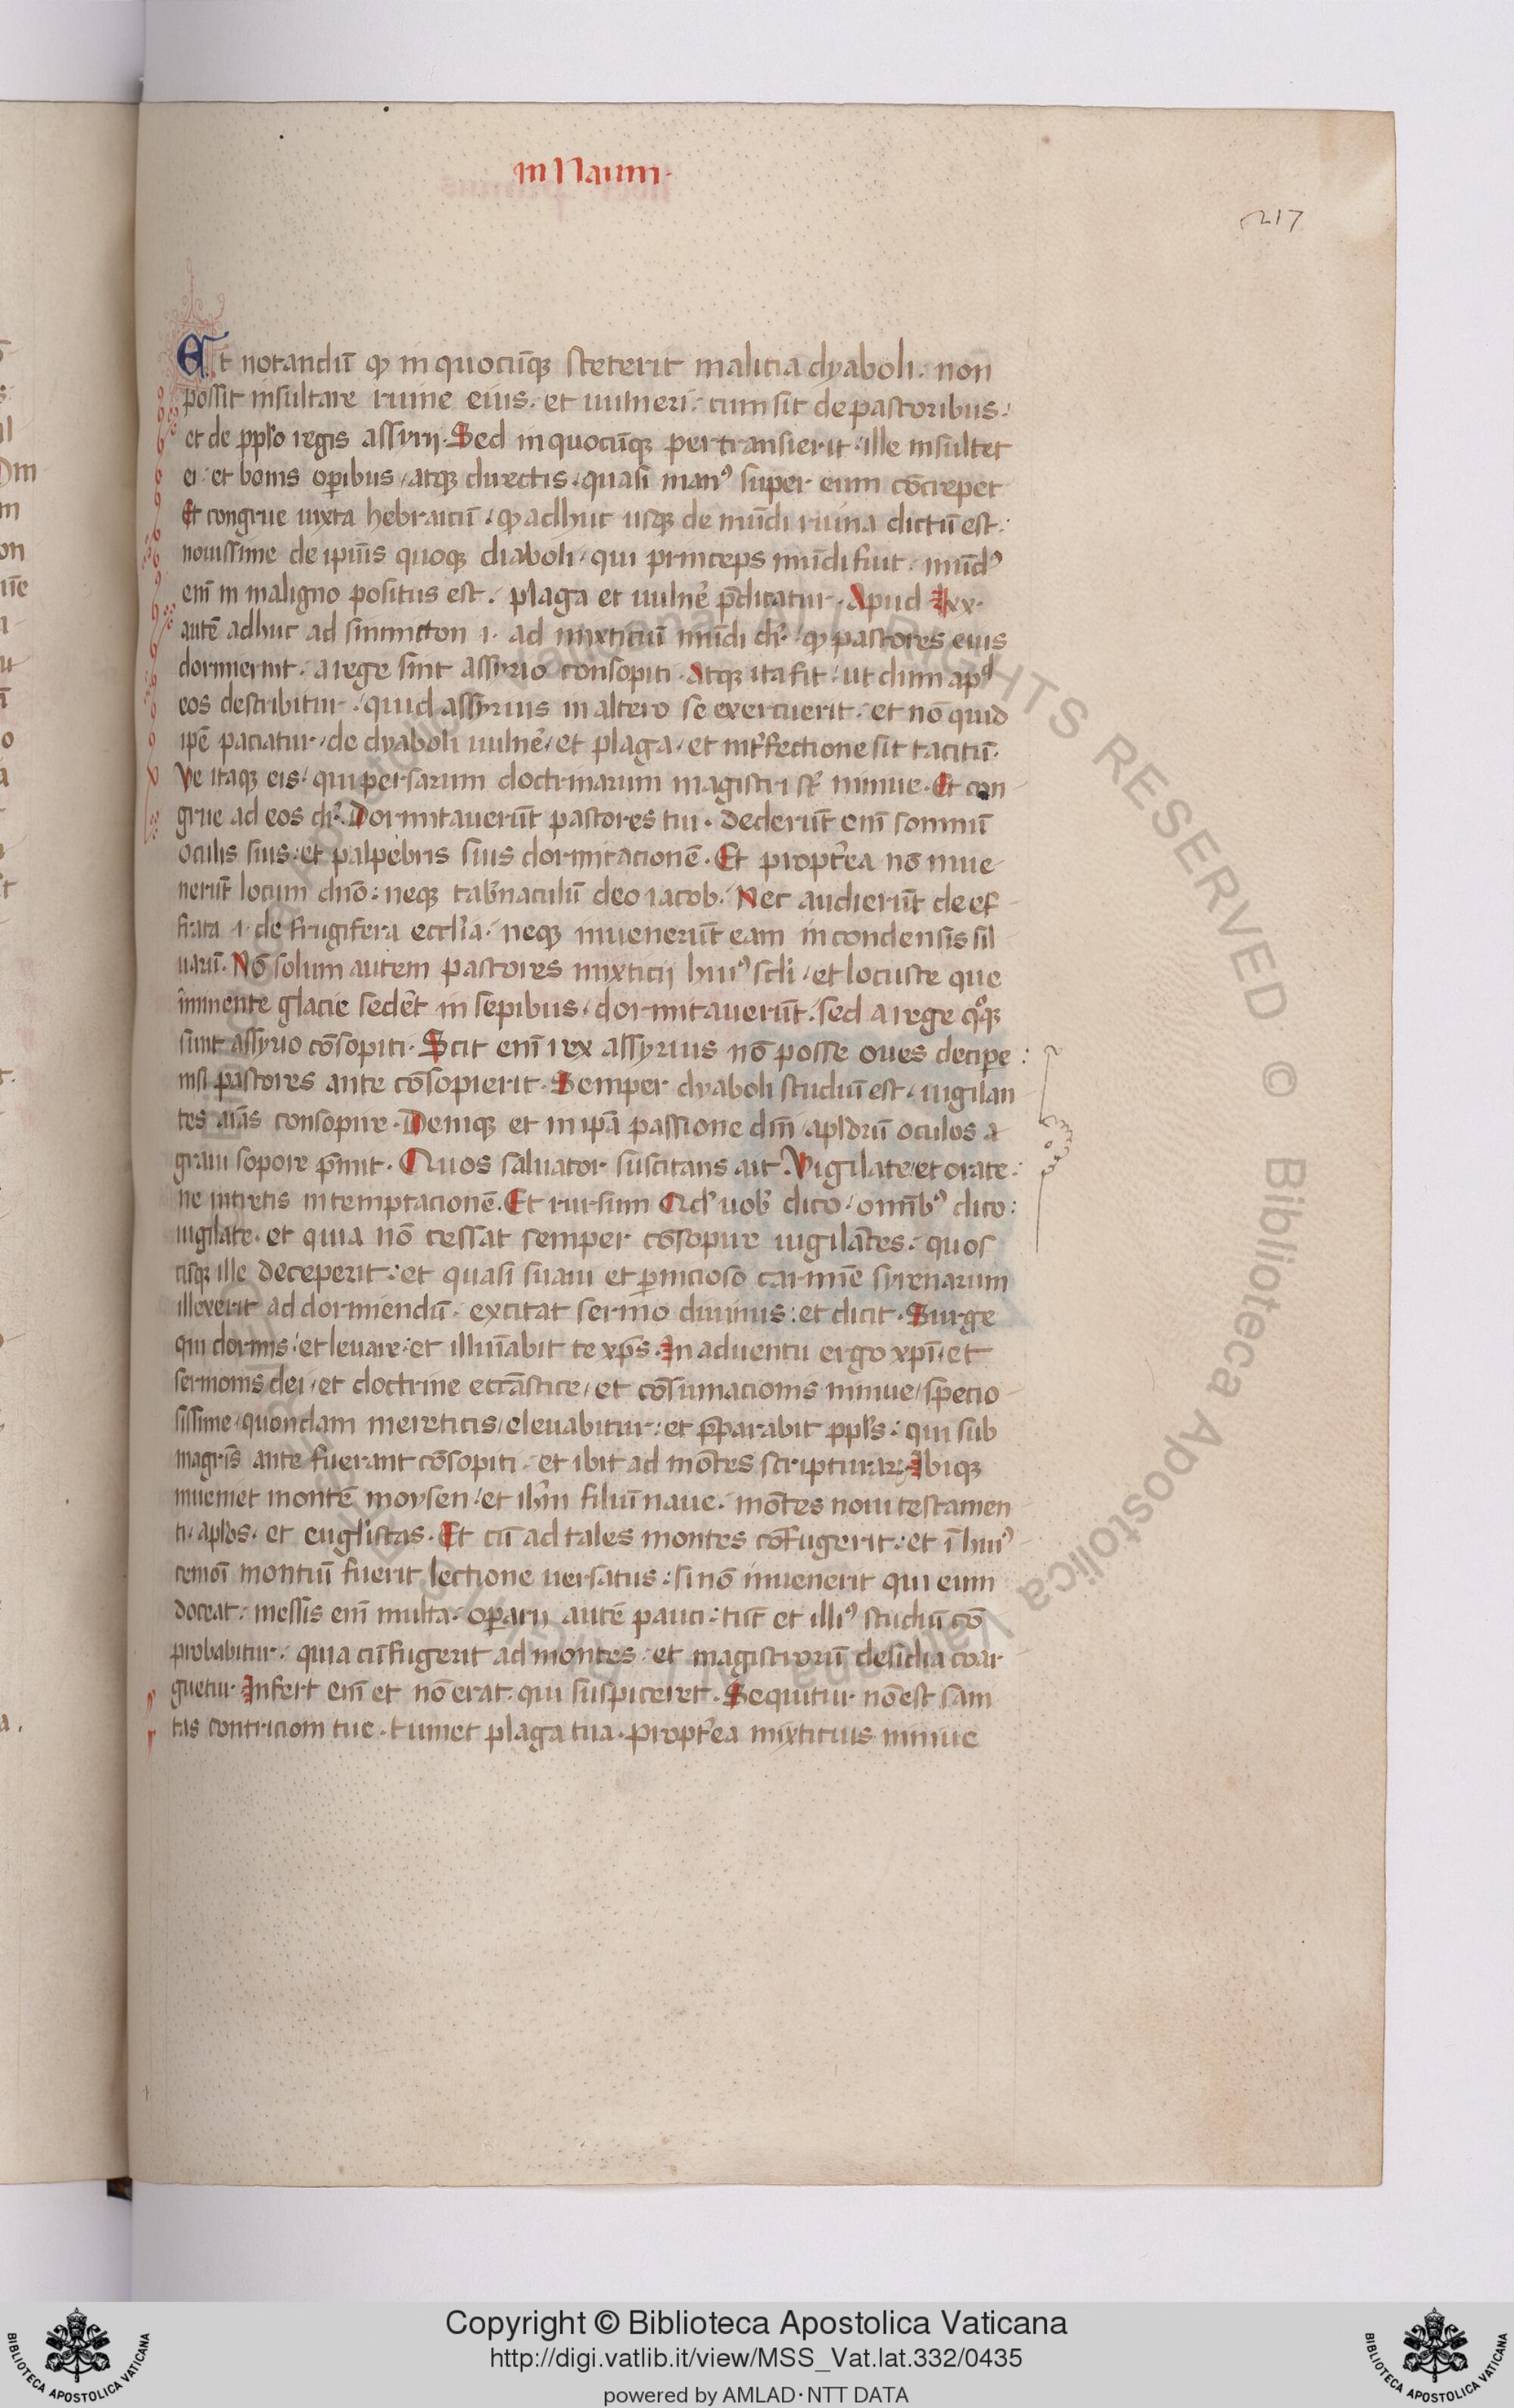 in Naum.
217
Et notandū ꝙ in quocūqꝫ steterit malicia dyaboli. non
possit insultare ruine eius. et uulneri. cum sit de pastoribus.
et de ppl̄o regis assyrij. Sed in quocūqꝫ pertransierit. ille insultet
ei. et bonis oꝑibus atqꝫ directis. quasi manꝰ super eum cōcrepet
Et congrue iuxta hebraicū. ꝙ adhuc usqꝫ de mūdi ruina dictū est.
nouissime de ipsius quoqꝫ diaboli qui princeps mūdi fuit. mūdꝰ
enī in maligno positus est. plaga et uulnē p̄dicatur. Apud lxx.
autē adhuc ad ad mixticiū mūdi dr̄. ꝙ pastores eius
dormierint. a rege sint assyrio consopiti. Atqꝫ ita fit. ut dum apd
eos describitur. quid assyrius in altero se exercuerit. et nō quid
ipē paciatur. de dyaboli uulnē et plaga et int̄fectione sit tacitū.
Ve itaqꝫ eis. qui persarum doctrinarum magistri st̄ niniue. Et con
grue ad eos dr̄. Dormitauerūt pastores tui. dederūt enī somnū
oculis suis. et palpebris suis dormitacionē. Et propt̄ea nō inue
nerūt locum dn̄o. neqꝫ tab̄naculū deo iacob. Nec audierūt de ef
frata .i. de frugifera eccl̄ia. neqꝫ inuenerūt eam in condensis sil
uarū. Nō solum autem pastores mixticij huiꝰ scl̄i et locuste que
īminente glacie sedēt in sepibus dormitauerūt. sed a rege qͦqꝫ
sunt assyrio cōsopiti. Scit enī rex assyrius nō posse oues deciꝑe
nisi pastores ante cōsopierit. Semper dyaboli studiū est uigilan
tes aīas consopire. Deniqꝫ et in ipā passione dn̄i apl̄orū oculos a
graui sopore p̄mit. Quos saluator suscitans ait. Vigilate et orate.
ne intretis in temptacionē. Et rursum Qd̓ uob̄ dico omībꝰ dico:
uigilate. et quia nō cessat semper cōsopire uigilātes. quos
cūqꝫ ille deceperit. et quasi suaui et ꝑnicioso carmīe syrenarum
illexerit ad dormiendū. excitat sermo diuinus. et dicit. Surge
qui dormis. et leuare. et illumīabit te xp̄s. In aduentu ergo xpī et
sermonis dei et doctrine eccāstice et cōsumacionis niniue specio
sissime quondam meretricis eleuabitur. et p̄parabit ppl̄s. qui sub
magr̄is ante fuerant cōsopiti. et ibit ad mōtes scripturaꝝ. Ibiqꝫ
inueniet montē moysen et ih̄m filiū naue. mōtes noui testamen
ti. apl̄os. et eugl̄istas. Et cū ad tales montes cōfugerit. et ī huiꝰ
cemoī montiū fuerit lectione uersatus. si nō inuenerit qui eum
doceat. messis enī multa. oꝑarij autē pauci. tūc et illiꝰ studiū cō
probabitur. quia cū fugerit ad montes. et magistrorū desidia coar
guetur. Infert enī et nō erat. qui suspiceret. Sequitur nō est sani
tas contricioni tue. tumet plaga tua. propt̄ea mixticius niniue
Copyright © Biblioteca Apostolica Vaticana
http://digi.vatlib.it/view/MSS_Vat.lat.332/0435
powered by AMLAD·NTT DATA